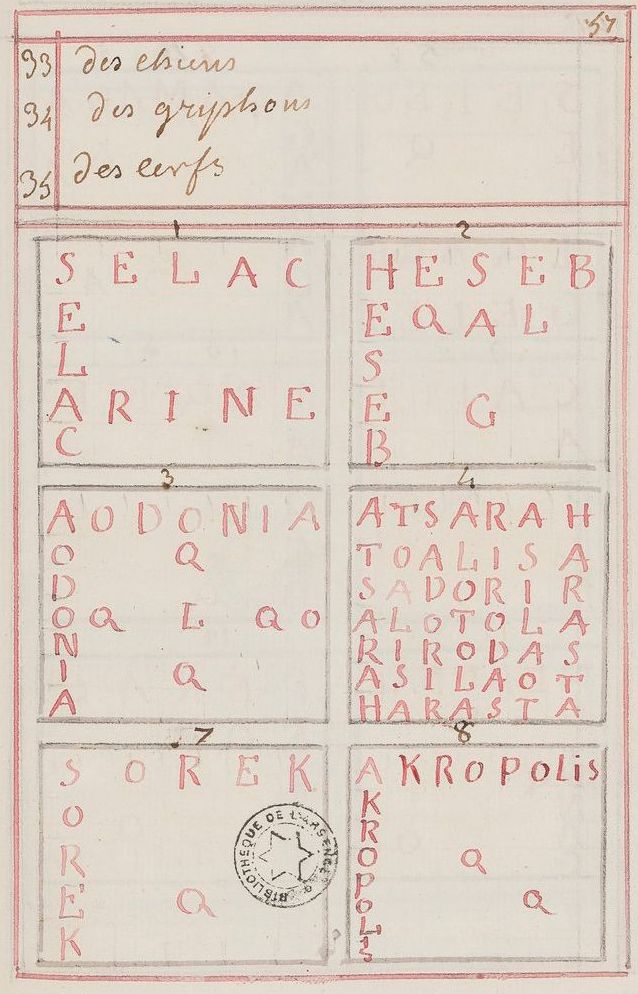 57
33 des chiens
34 des griphons
35 des cerfs
1
S E L A C
E
L
A R I N E
C
2
H E S E B
E Q A L
S
E G
B
3
A O D O N I A
O Q
D
O Q L Q O
N
I Q
A
4
A T S A R A H
T O A L I S A
S A D O R I R
A L O T O L A
R I R O D A S
A S I L A O T
H A R A S T A
7
S O R E K
O
R
E Q
K
BIBLIOTHEQUE DE L'ARSENAL
8
A K R O P O L i S
K
R
O Q
P
O Q
L
i
S